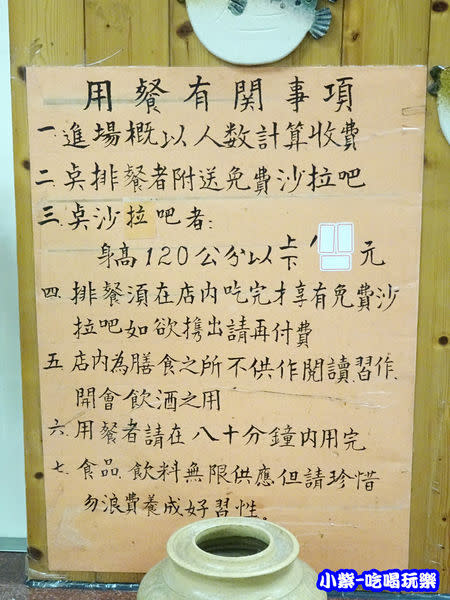 用餐有関事項
一.進場概以人数計算收費
二.点排餐者附送免費沙拉吧
三.点沙拉吧者:
身高120公分以上下 元
四.排餐須在店内吃完才享有免費沙
拉吧如欲攜出請再付費
五.店内為膳食之所不供作閱讀習作.
開會飲酒之用
六.用餐者請在八十分鐘内用完
七.食品.飲料無限供應但請珍惜
勿浪費養成好習性。
小紫-吃喝玩樂